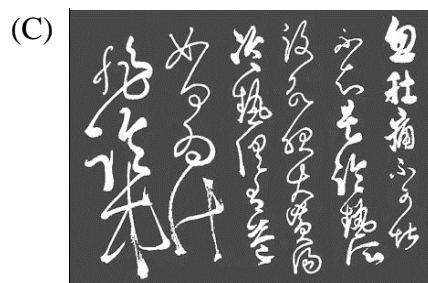 (C)
忽肚痛不可堪
不知是冷熱所
致欲服大黃湯
冷熱俱有益
如何為計